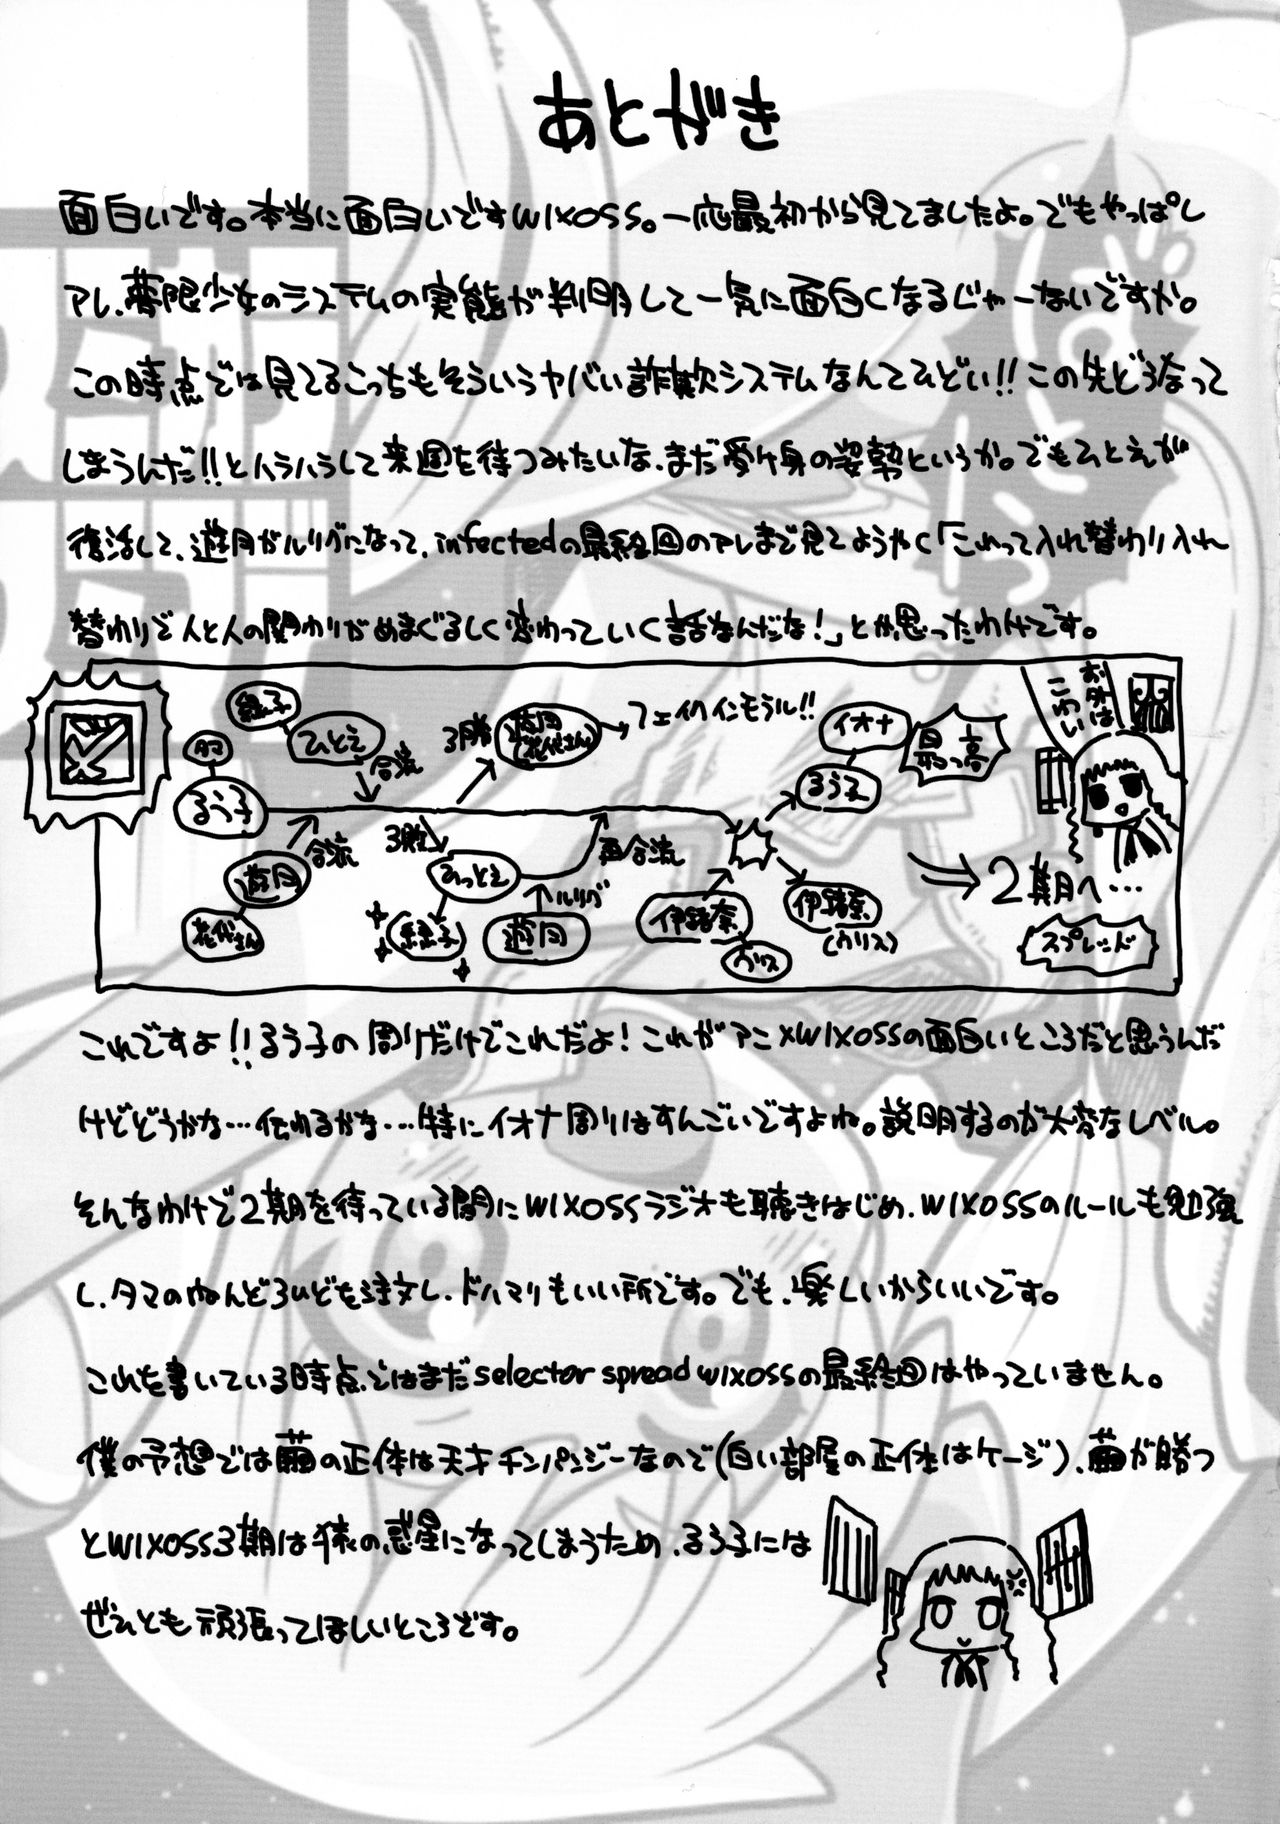 あとがき
面白いです。本当に面白いですWIXOSS。一応最初から見てましたよ。でもやっぱし
アレ、夢限少女のシステムの実態が判明して一気に面白くなるじゃーないですか。
この時点では見てるこっちもそういうヤバい詐欺システムなんてひどい!!この先どうなって
しまうんだ!!とハラハラして来週を待つみたいな、まだ受け身の姿勢というか。でもひとえが
復活して、遊月がルリグになって、infectedの最終回のアレまで見てようやく「これって入れ替わり入れ
替わりで人と人の関わりがめまぐるしく変わっていく話なんだな!」とか思ったわけです。
お外は
こわい
緑子
ひとえ
合流
3勝
遊月
(花代さん)
→フェイクインモラル!!
イオナ
るう子
最っ高
タマ
るう子
遊月
合流
花代さん
3敗
ひとえ
緑子
ルリグ
遊月
再合流
伊緒奈
ウリス
伊緒奈
(ウリス)
2期へ…
スプレッド
これですよ!!るう子の周りだけでこれだよ!これがアニメWIXOSSの面白いところだと思うんだ
けどどうかな…伝わるかな…特にイオナ周りはすんごいですよね。説明するのが大変なレベル。
そんなわけで2期を待っている間にWIXOSSラジオも聴きはじめ、WIXOSSのルールも勉強
し、タマのねんどろいどを注文し、ドハマリもいい所です。でも、楽しいからいいです。
これを書いている時点ではまだselector spread wixossの最終回はやっていません。
僕の予想では繭の正体は天才チンパンジーなので(白い部屋の正体はケージ)、繭が勝つ
とWIXOSS3期は猿の惑星になってしまうため、るう子には
ぜひとも頑張ってほしいところです。